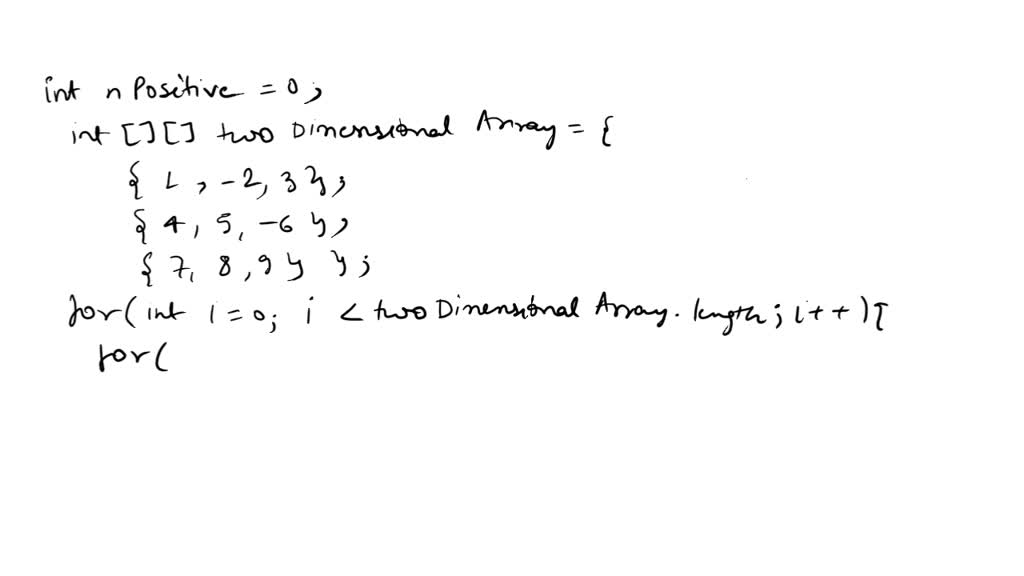 int nPositive = 0;
int [][] two Dimensional Array = {
{ 1, -2, 3 };
{ 4, 5, -6 },
{ 7, 8, 9 } };
for( int i = 0; i < two Dimensional Array. length; i++ ) {
for(